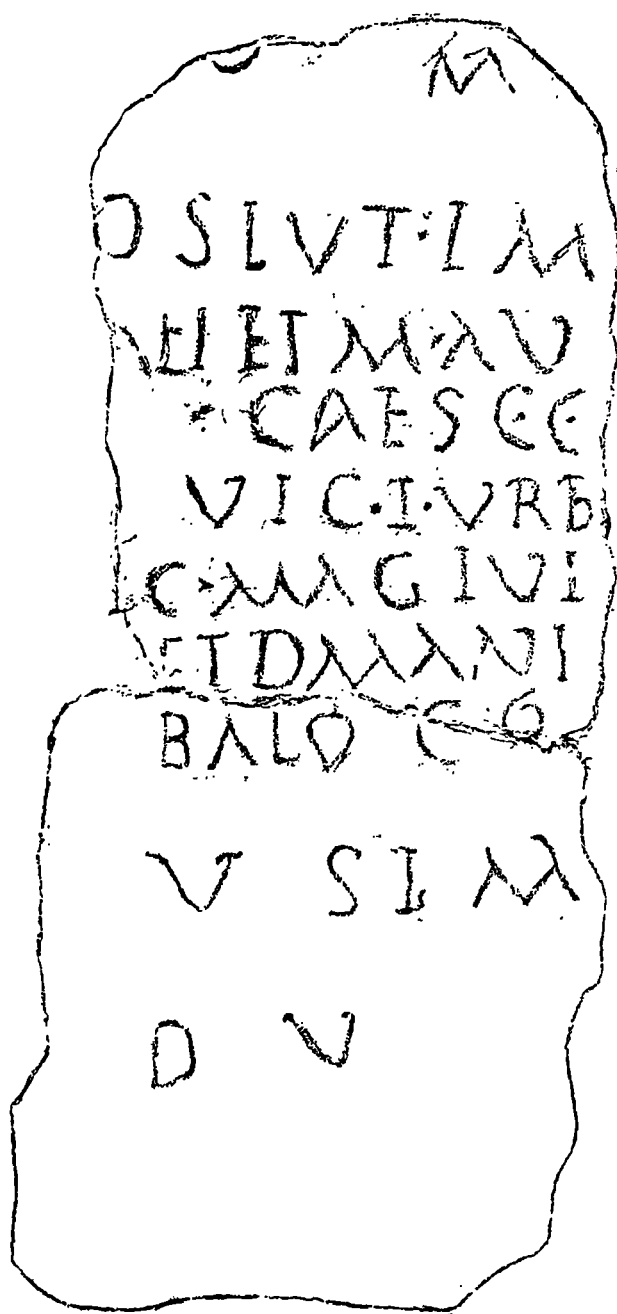 M
O SLVT·IM
ET M·AV
· CAES C·C·
VIC·I·VRB
C·MAGIVI
ET D MANI
BALO C O
V SL M
D V